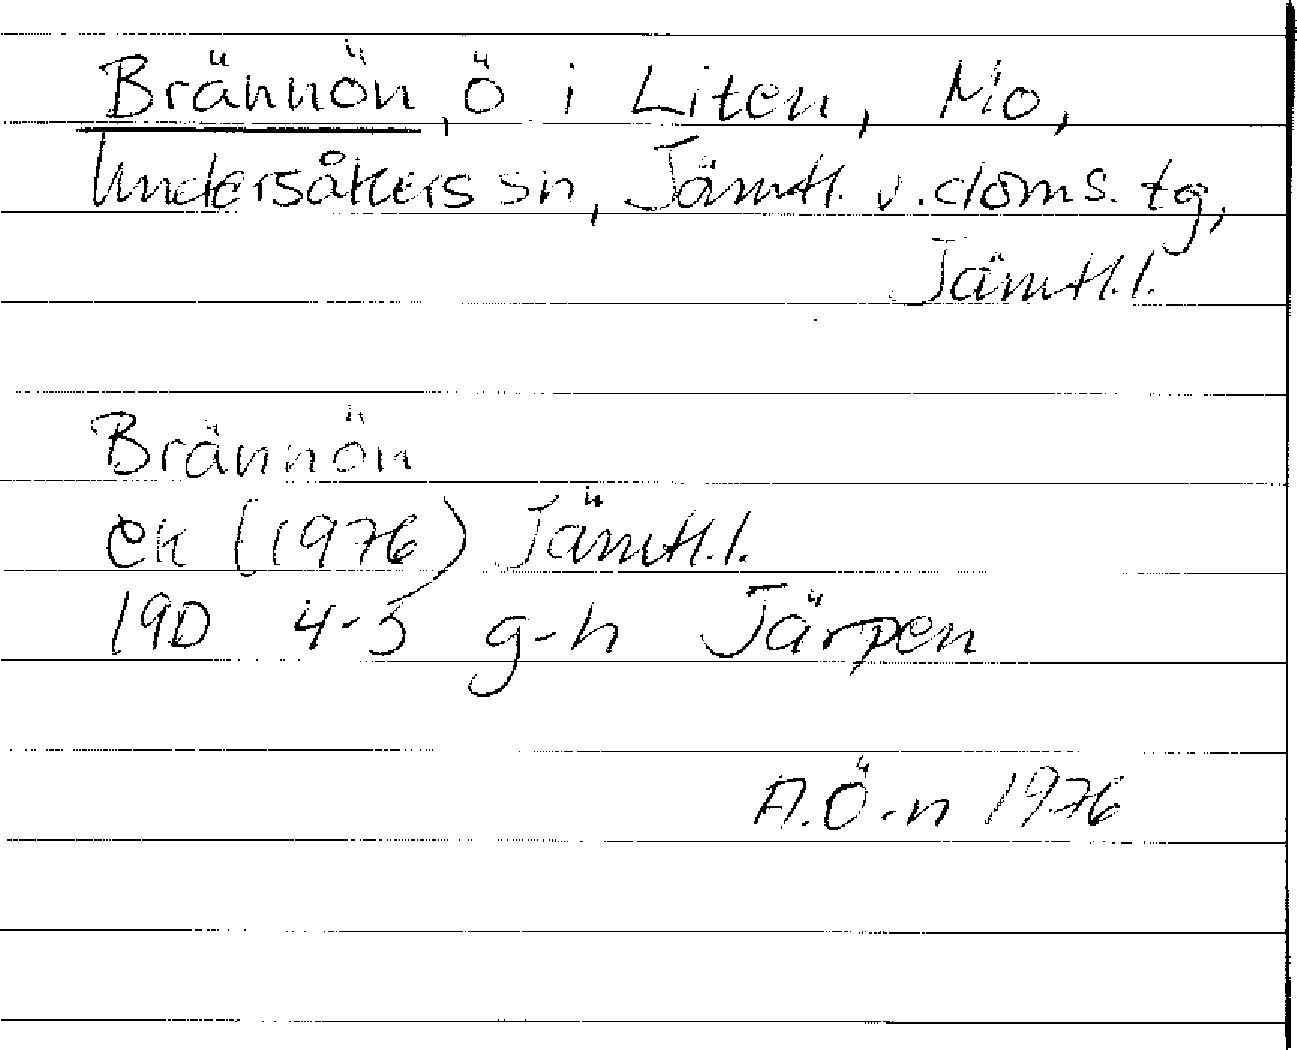 Brännön, ö i Liten, Mo,
Undersåkers sn, Jämtl. v. doms. tg,
Jämtl. l.
Brännön
ek (1976) Jämtl. l.
19D 4-5 g-h Järpen
A.Ö-n 1976